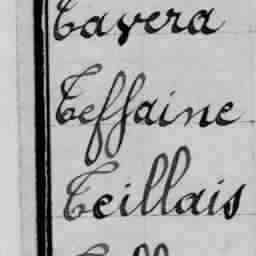 Tavera
Teffaine
Teillais